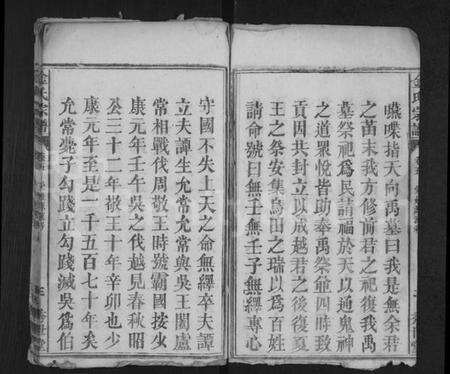 嚥喋指天向禹墓曰我是無余君
之苗末我方修前君之祀復我禹
墓祭祀爲民請福於天以通鬼神
之道眾悅皆助奉禹祭爺四時致
貢因共封立以成越君之後復夏
王之祭安集鳥田之瑞以爲百姓
請命號曰無壬無壬子無繹專心
守國不失上天之命無繹卒夫譚
立夫譚生允常允常與吳王闔廬
常相戰伐周敬王時號霸國按少
康元年壬午吳之伐越見春秋昭
公三十二年王十年辛卯也少
康元年至是一千五百七十年矣
允常子勾踐立勾踐滅吳爲伯
金氏宗譜